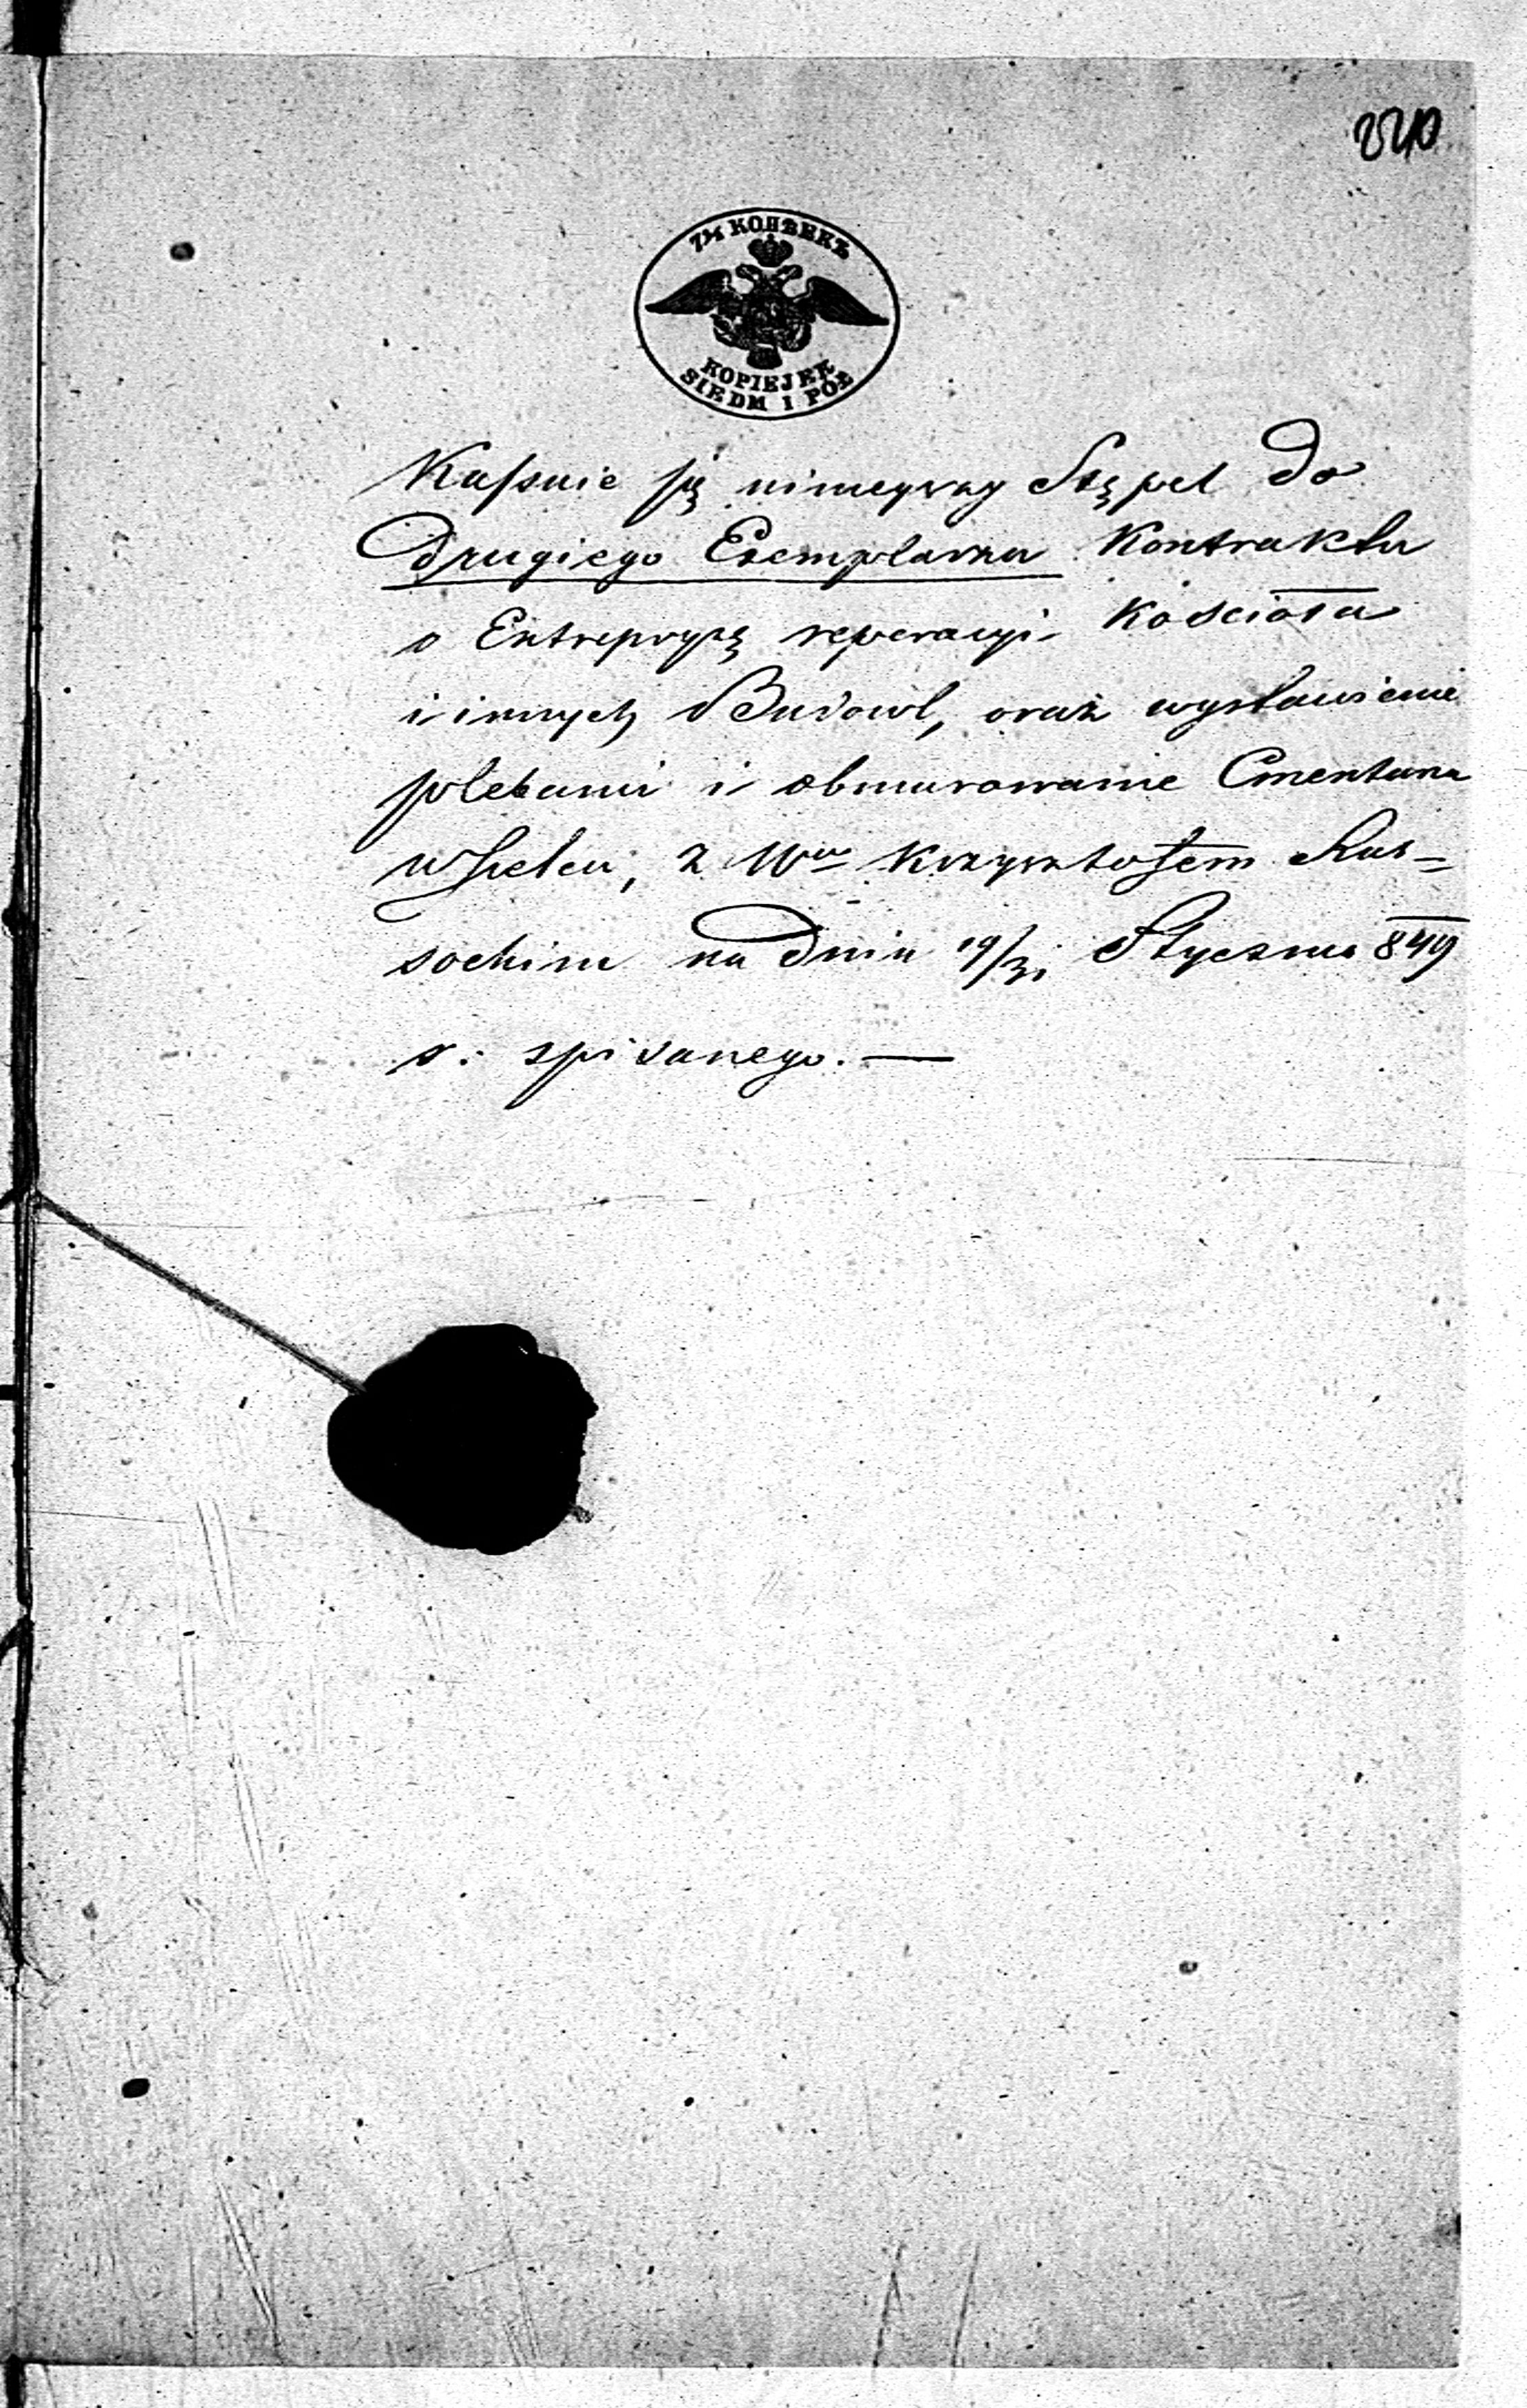 240
7½ КОПѢЕКЪ
KOPIEJEK
SIEDM I PÓŁ
Kassuie się ninieyszy Stępel do
Drugiego Exemplarza Kontraktu
o Entrepryzę reperacyi Kościoła
i innych Budowl, oraz wystawienie
plebanii i obmurowanie Cmentarza
z Wm Krzysztofem Rus=
sockim na dniu 19/31 Stycznia 849
r: spisanego. —